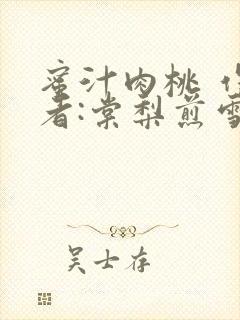 蜜汁肉桃 作
者:棠梨煎雪
吴士存